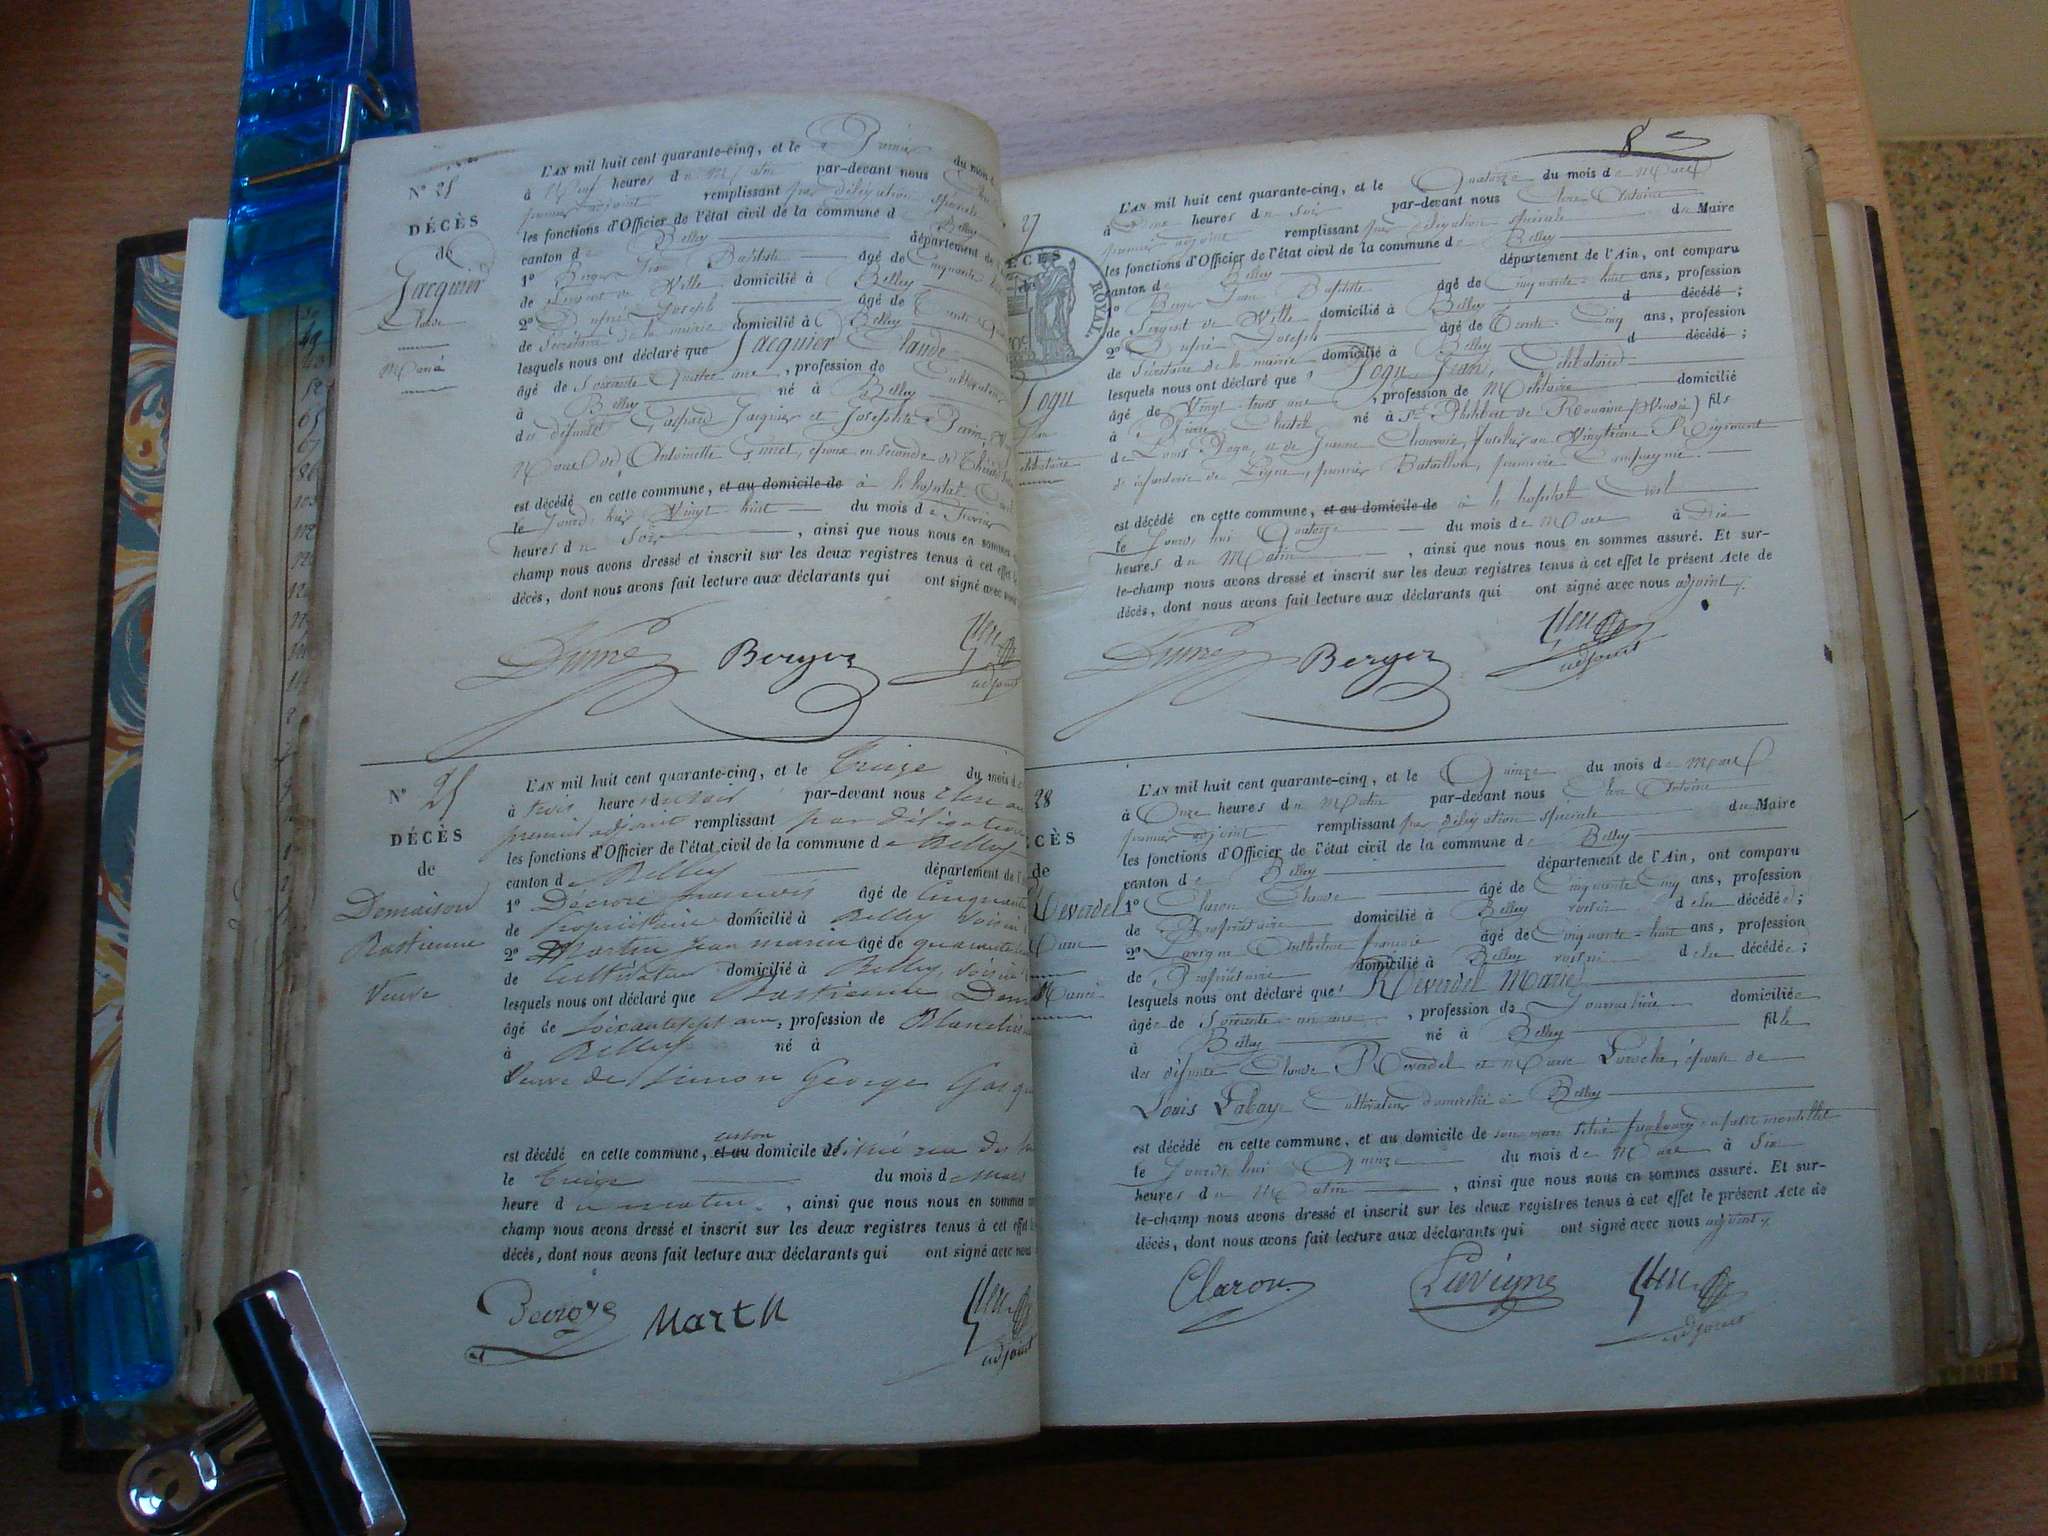 N° 25
DÉCÈS
de
Jacquier
Claude
Marié
L'AN mil huit cent quarante-cinq, et le Premier du mois
à Neuf heures du Matin par-devant nous
premier adjoint remplissant par délégation spéciale
les fonctions d'Officier de l'état civil de la commune d Belley
canton de Belley département de
1° Berger Jean Baptiste âgé de Cinquante
de Sergent de Ville domicilié à Belley
2° Dufré Joseph âgé de Trente
de Secrétaire de la mairie domicilié à Belley
lesquels nous ont déclaré que Jacquier Claude
âgé de Soixante Quatre ans, profession de Cultivateur
à Belley né à Belley
des défunts Gaspard Jacquier et Josephte Perrin,
Antoinette époux en seconde de
est décédé en cette commune, et au domicile de à l'hopital
le Jourd'hui Vingt-huit du mois de Fevrier
heures du Soir, ainsi que nous nous en sommes
champ nous avons dressé et inscrit sur les deux registres tenus à cet effet
décès, dont nous avons fait lecture aux déclarants qui ont signé avec nous
Berger
adjoint
N° 25
DÉCÈS
de
Demaison
Bastienne
Veuve
L'AN mil huit cent quarante-cinq, et le Treize du mois de
à trois heures du soir par-devant nous
premier adjoint remplissant par délégation
les fonctions d'Officier de l'état civil de la commune de Belley
canton de Belley département de l'
1° Decroze francois âgé de Cinquante
de Propriétaire domicilié à Belley voisin
2° Martin Jean marie âgé de quarante
de Cultivateur domicilié à Belley, voisin
lesquels nous ont déclaré que Bastienne Dem
âgé de soixante sept ans, profession de Blanchis
à Belley né à
Veuve de Simon George
est décédé en cette commune, et au domicile de situé rue des
le Treize du mois de Mars
heure du matin, ainsi que nous nous en sommes
champ nous avons dressé et inscrit sur les deux registres tenus à cet effet
décès, dont nous avons fait lecture aux déclarants qui ont signé avec nous
Decroze Martin
adjoint
8
27
ÉCÈS
de
ROYAL
Jean
Célibataire
L'AN mil huit cent quarante-cinq, et le Quatorze du mois de Mars
à Deux heures du Soir par-devant nous Antoine
premier adjoint remplissant par délégation spéciale du Maire
les fonctions d'Officier de l'état civil de la commune de Belley
canton de Belley département de l'Ain, ont comparu
1° Berger Jean Baptiste âgé de Cinquante-huit ans, profession
de Sergent de Ville domicilié à Belley d décédé;
2° Dufré Joseph âgé de Trente-Cinq ans, profession
de Secrétaire de la mairie domicilié à Belley d décédé;
lesquels nous ont déclaré que Jean, Célibataire
âgé de Vingt-trois ans, profession de Militaire domicilié
à Pierre Chatel né à St Philbert de (Vendée) fils
de Louis et de Jeanne fusilier au Vingtième Régiment
d'infanterie de Ligne, premier Bataillon, première Compagnie.
est décédé en cette commune, et au domicile de à l'hopital Civil
le Jourd'hui Quatorze du mois de Mars à Dix
heures du Matin, ainsi que nous nous en sommes assuré. Et sur-
le-champ nous avons dressé et inscrit sur les deux registres tenus à cet effet le présent Acte de
décès, dont nous avons fait lecture aux déclarants qui ont signé avec nous adjoint
Berger
adjoint
28
ÉCÈS
de
Reverdel
Marie
Mariée
L'AN mil huit cent quarante-cinq, et le Quinze du mois de Mars
à Onze heures du Matin par-devant nous Antoine
premier adjoint remplissant par délégation spéciale du Maire
les fonctions d'Officier de l'état civil de la commune de Belley
canton de Belley département de l'Ain, ont comparu
1° Claron Claude âgé de Cinquante Cinq ans, profession
de Propriétaire domicilié à Belley voisin de la décédée;
2° Lavigne Anthelme francois âgé de Cinquante-huit ans, profession
de Propriétaire domicilié à Belley voisin de la décédée;
lesquels nous ont déclaré que Reverdel Marie
âgée de Soixante ans, profession de Journalière domiciliée
à Belley né à Belley fille
des défunts Claude Reverdel et Marie épouse de
Louis Labaye Cultivateur domicilié à Belley
est décédé en cette commune, et au domicile de son mari situé faubourg
le Jourd'hui Quinze du mois de Mars à Six
heures du Matin, ainsi que nous nous en sommes assuré. Et sur-
le-champ nous avons dressé et inscrit sur les deux registres tenus à cet effet le présent Acte de
décès, dont nous avons fait lecture aux déclarants qui ont signé avec nous adjoint
Claron Lavigne
adjoint